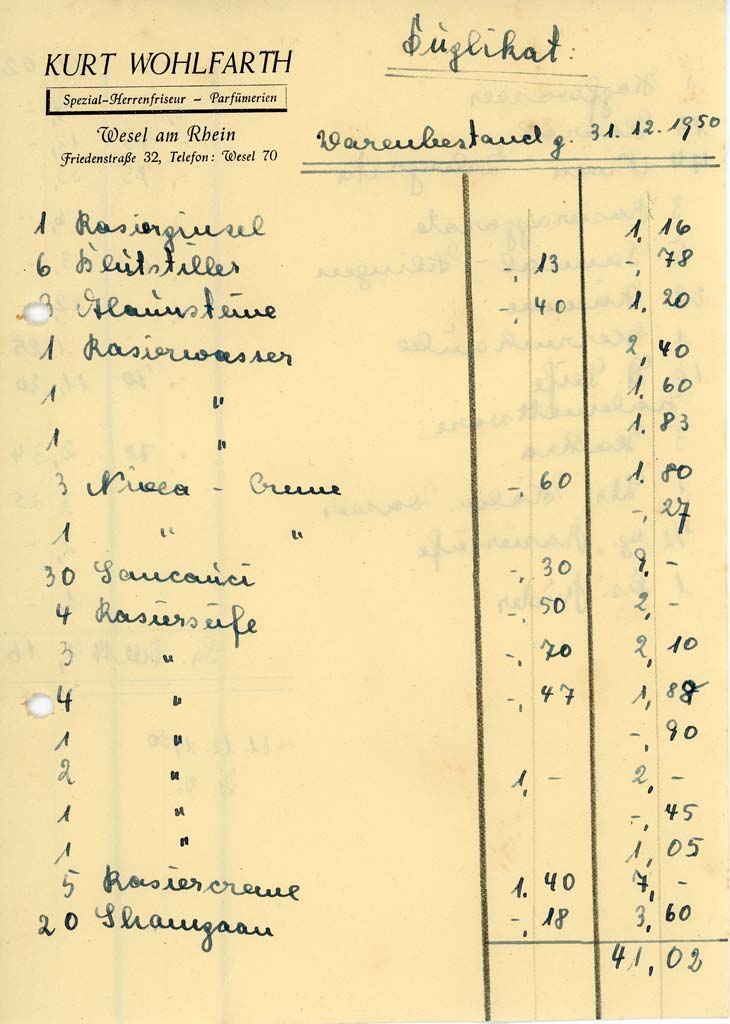 Duplikat:
KURT WOHLFARTH
Spezial-Herrenfriseur – Parfümerien
Wesel am Rhein
Friedenstraße 32, Telefon: Wesel 70
Warenbestand p. 31.12.1950
1 Rasierpinsel 1, 16
6 Blutstiller -, 13 -, 78
3 Alaunsteine -, 40 1, 20
1 Rasierwasser 2, 40
1 " 1, 60
1 " 1, 83
3 Nivea - Creme -, 60 1, 80
1 " " -, 27
30 -, 30 9, -
4 Rasierseife -, 50 2, -
3 " -, 70 2, 10
4 " -, 47 1, 88
1 " -, 90
2 " 1, - 2, -
1 " -, 45
1 " 1, 05
5 Rasiercreme 1, 40 7, -
20 Shampoon -, 18 3, 60
41, 02